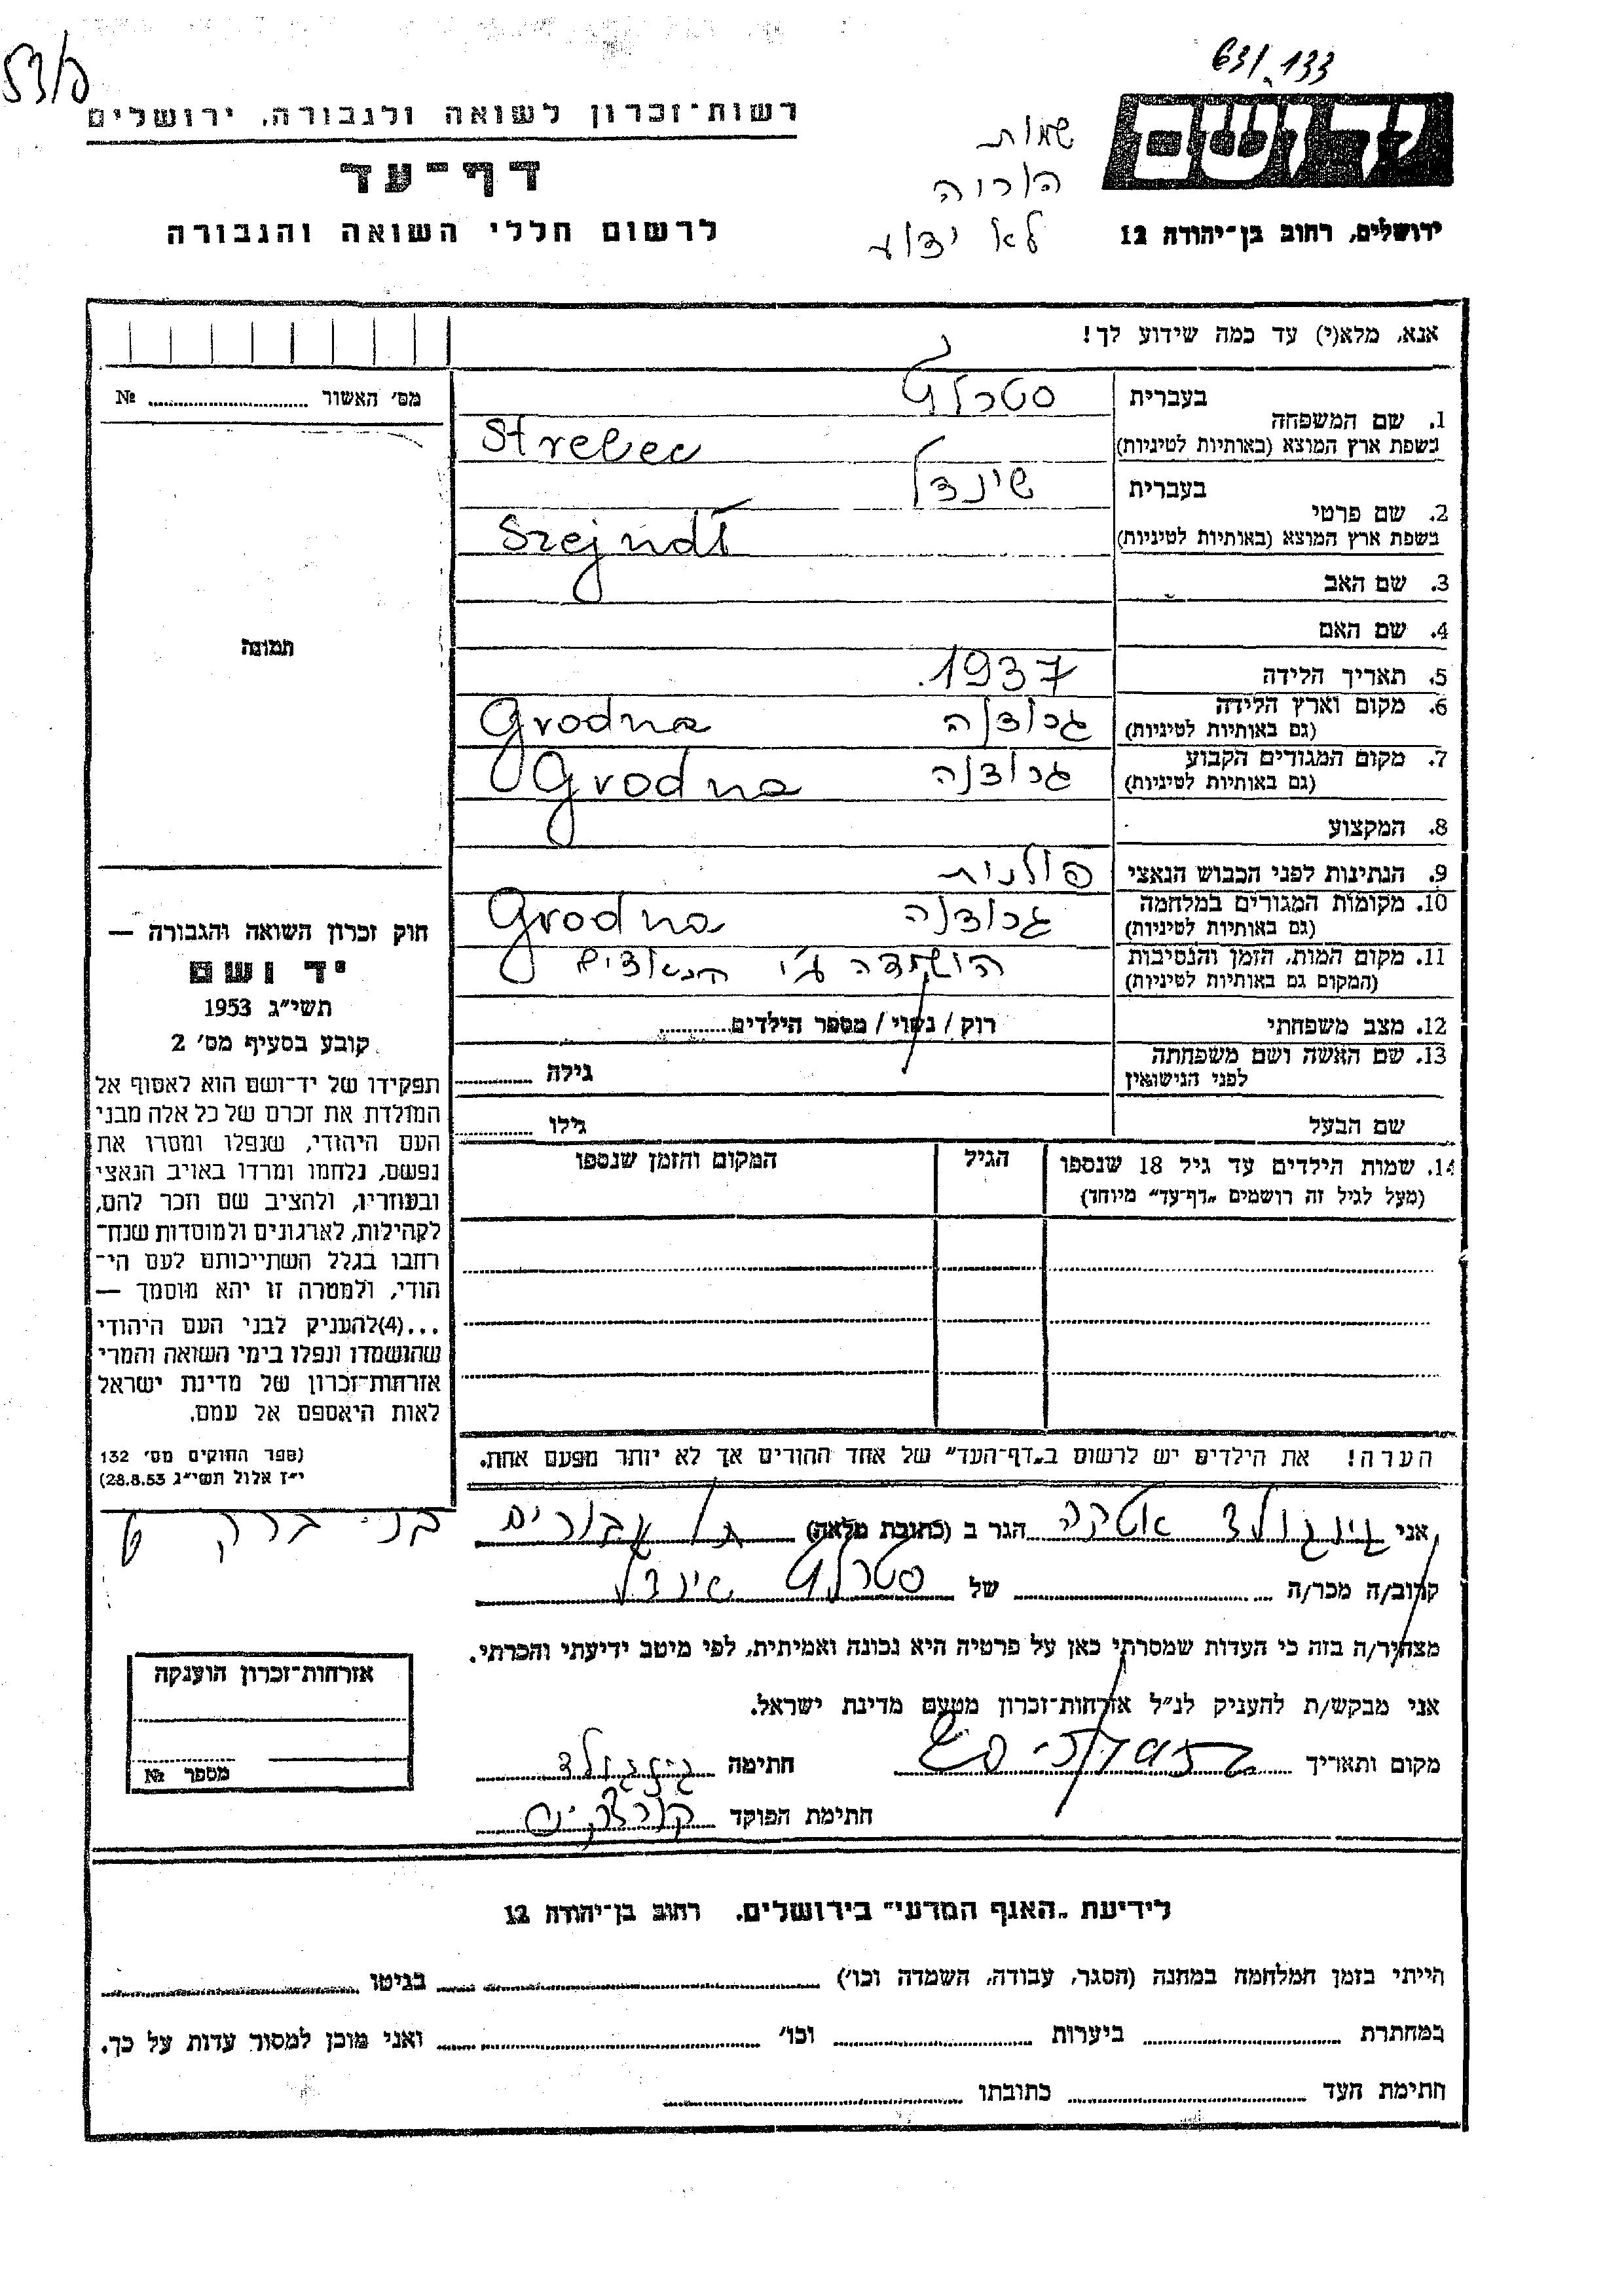 53/פ
63/133
רשות־זכרון לשואה ולגבורה, ירושלים
דף־עד
לרשום חללי השואה והגבורה
שמות
הוריה
לא ידוע
יד ושם
ירושלים, רחוב בן־יהודה 12
אנא, מלא(י) עד כמה שידוע לך!
מס׳ האשור № 
1. שם המשפחה
בעברית סטרלץ
בשפת ארץ המוצא (באותיות לטיניות) Strelec
2. שם פרטי
בעברית שינדל
בשפת ארץ המוצא (באותיות לטיניות) Szejndl
3. שם האב
4. שם האם
5. תאריך הלידה 1937
6. מקום וארץ הלידה גרודנה Grodna
(גם באותיות לטיניות)
7. מקום המגורים הקבוע גרודנה Grodna
(גם באותיות לטיניות)
8. המקצוע
9. הנתינות לפני הכבוש הנאצי פולנית
10. מקומות המגורים במלחמה גרודנה Grodna
(גם באותיות לטיניות)
11. מקום המות, הזמן והנסיבות הושמדה ע״י הנאצים
(המקום גם באותיות לטיניות)
12. מצב משפחתי רוק / נשוי / מספר הילדים
13. שם האשה ושם משפחתה
לפני הנישואין גילה
שם הבעל גילו
14. שמות הילדים עד גיל 18 שנספו הגיל המקום והזמן שנספו
(מעל לגיל זה רושמים „דף־עד” מיוחד)
תמונה
חוק זכרון השואה והגבורה —
יד ושם
תשי״ג 1953
קובע בסעיף מס׳ 2
תפקידו של יד־ושם הוא לאסוף אל
המולדת את זכרם של כל אלה מבני
העם היהודי, שנפלו ומסרו את
נפשם, נלחמו ומרדו באויב הנאצי
ובעוזריו, ולהציב שם וזכר להם,
לקהילות, לארגונים ולמוסדות שנח־
רחבו בגלל השתייכותם לעם הי־
הודי, ולמטרה זו יהא מוסמך —
...(4)להעניק לבני העם היהודי
שהושמדו ונפלו בימי השואה והמרי
אזרחות־זכרון של מדינת ישראל
לאות היאספם אל עמם.
(ספר החוקים מס׳ 132
י״ז אלול תשי״ג 28.8.53)
הערה! את הילדים יש לרשום ב„דף־העד” של אחד ההורים אך לא יותר מפעם אחת.
אני גינגולד אטקה הגר ב (כתובת מלאה) בני ברק
קרוב/ה מכר/ה של סטרלץ שינדל
מצהיר/ה בזה כי העדות שמסרתי כאן על פרטיה היא נכונה ואמיתית, לפי מיטב ידיעתי והכרתי.
אני מבקש/ת להעניק לנ״ל אזרחות־זכרון מטעם מדינת ישראל.
מקום ותאריך חתימה גינגולד
חתימת הפוקד
אזרחות־זכרון הוענקה
מספר №
לידיעת „האגף המדעי” בירושלים. רחוב בן־יהודה 12
הייתי בזמן המלחמה במחנה (הסגר, עבודה, השמדה וכו׳) בגיטו
במחתרת ביערות וכו׳ ואני מוכן למסור עדות על כך.
חתימת העד כתובתו